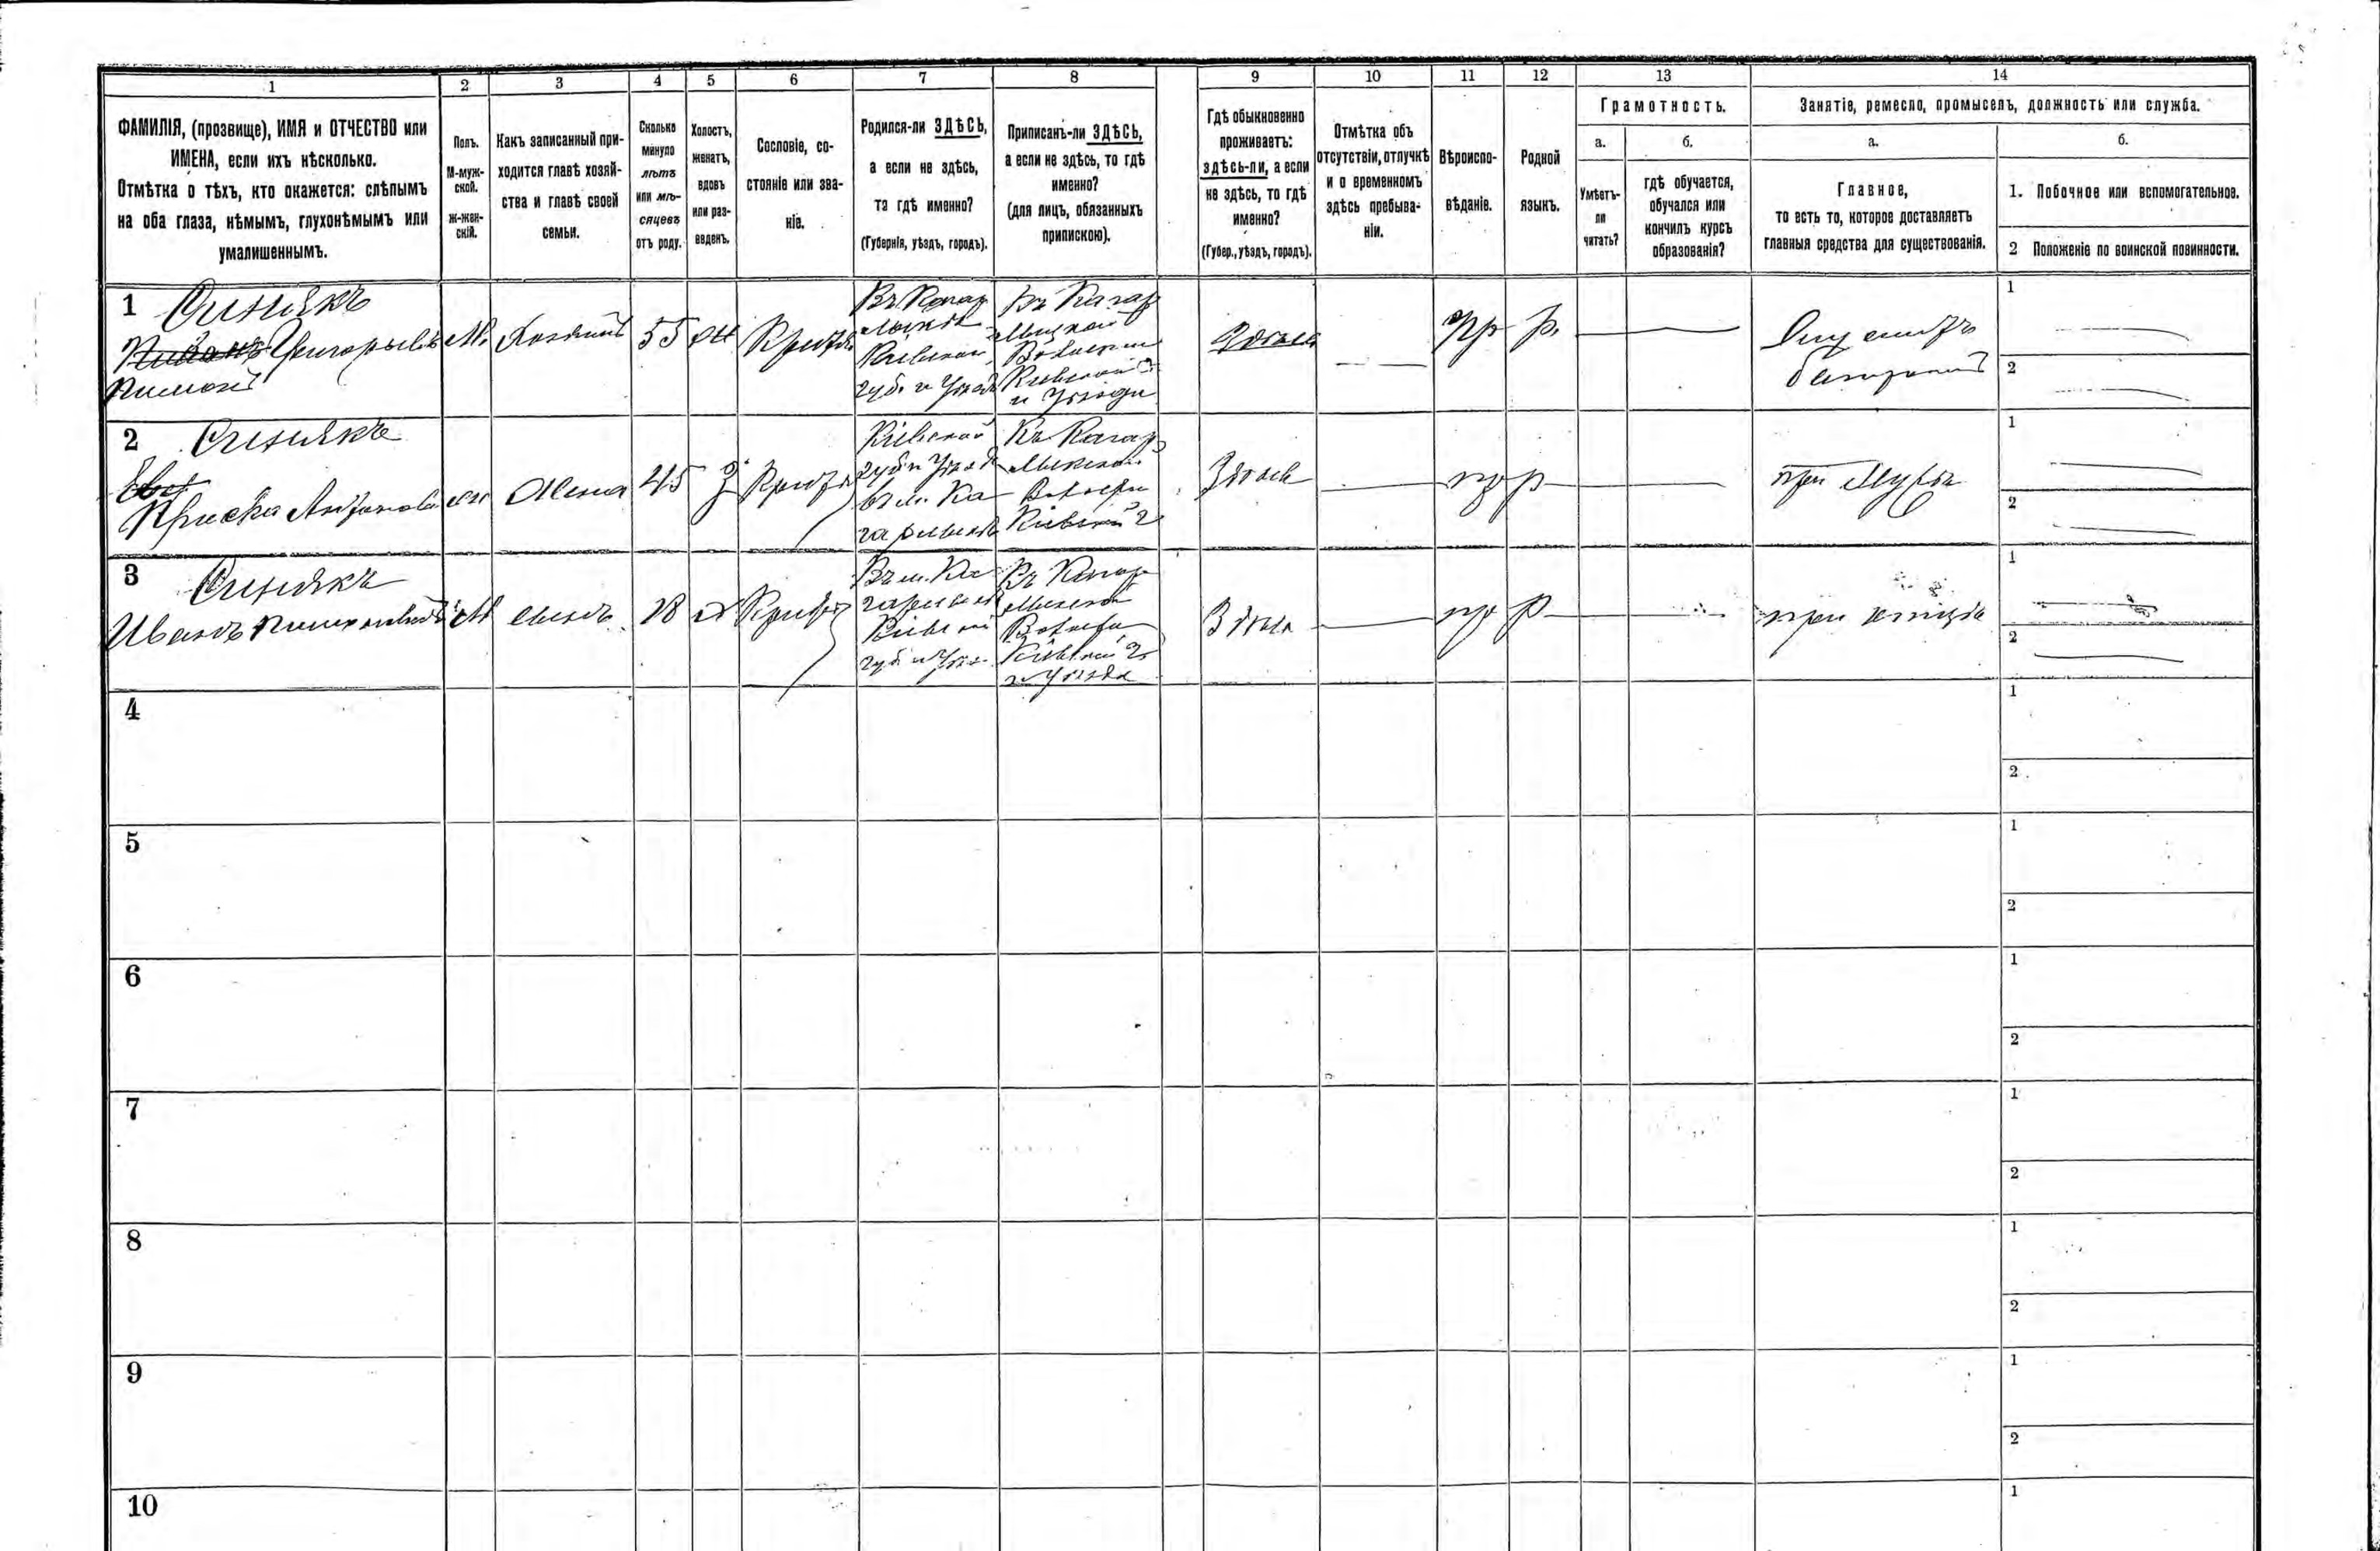 1 2 3 4 5 6 7 8 9 10 11 12 13 14
ФАМИЛІЯ, (прозвище), ИМЯ и ОТЧЕСТВО или
ИМЕНА, если ихъ нѣсколько.
Отмѣтка о тѣхъ, кто окажется: слѣпымъ
на оба глаза, нѣмымъ, глухонѣмымъ или
умалишеннымъ.
Полъ.
М-муж-
ской.
ж-жен-
скій.
Какъ записанный при-
ходится главѣ хозяй-
ства и главѣ своей
семьи.
Сколько
минуло
лѣтъ
или мѣ-
сяцевъ
отъ роду.
Холостъ,
женатъ,
вдовъ
или раз-
веденъ.
Сословіе, со-
стояніе или зва-
ніе.
Родился-ли ЗДѢСЬ,
а если не здѣсь,
то гдѣ именно?
(Губернія, уѣздъ, городъ).
Приписанъ-ли ЗДѢСЬ,
а если не здѣсь, то гдѣ
именно?
(для лицъ, обязанныхъ
припискою).
Гдѣ обыкновенно
проживаетъ:
здѣсь-ли, а если
не здѣсь, то гдѣ
именно?
(Губер., уѣздъ, городъ).
Отмѣтка объ
отсутствіи, отлучкѣ
и о временномъ
здѣсь пребыва-
ніи.
Вѣроиспо-
вѣданіе.
Родной
языкъ.
Грамотность.
а.
Умѣетъ-
ли
читать?
б.
гдѣ обучается,
обучался или
кончилъ курсъ
образованія?
Занятіе, ремесло, промыселъ, должность или служба.
а.
Главное,
то есть то, которое доставляетъ
главныя средства для существованія.
б.
1. Побочное или вспомогательное.
2 Положеніе по воинской повинности.
1
Синякъ
Григорьевъ
Пимонъ
М.
Хозяинъ
55
ж
Крест
Въ Кагар
лыкѣ
Кіевской
губ. и Уѣзд
Въ Кагар
лыцкой
Волости
Кіевской
и Уѣзда
Здѣсь
пр
р.
1
2
2
Синякъ
Антонова
ж
Жена
45
З
Крест
Кіевской
губ и Уѣзд
в м. Ка
гарлыкѣ
Въ Кагар
лыкской
Волости
Кіевской г
Здѣсь
пр
р
при Мужѣ
1
2
3
Синякъ
Иванъ
М
сынъ
18
х
Крест
Въ м. Ка
гарлыкѣ
Кіевской
губ и Уѣз
Въ Кагар
лыкской
Волости
Кіевской г
и Уѣзда
Здѣсь
пр
р
при отцѣ
1
2
4
1
2
5
1
2
6
1
2
7
1
2
8
1
2
9
1
2
10
1